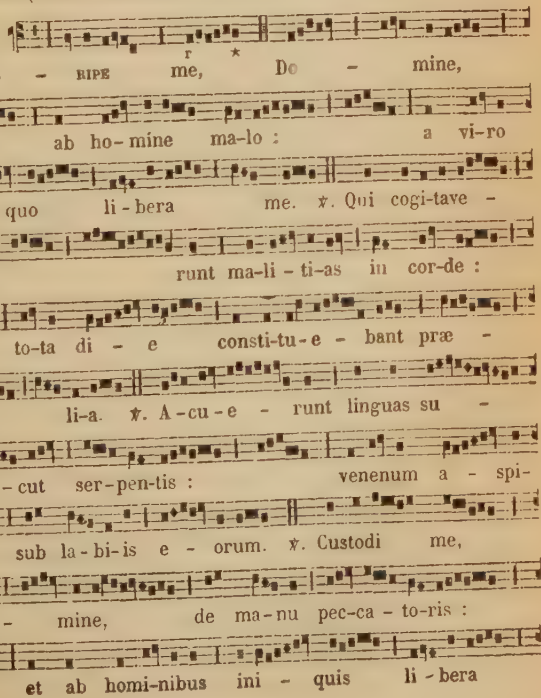 - RIPE me, Do - mine,
ab ho-mine ma-lo : a vi-ro
quo li-bera me. ℣. Qui cogi-tave -
runt ma-li-ti-as in cor-de :
to-ta di - e consti-tu-e - bant præ -
li-a. ℣. A-cu-e - runt linguas su -
-cut ser-pen-tis : venenum a - spi-
sub la-bi-is e - orum. ℣. Custodi me,
- mine, de ma-nu pec-ca-to-ris :
et ab homi-nibus ini - quis li-bera